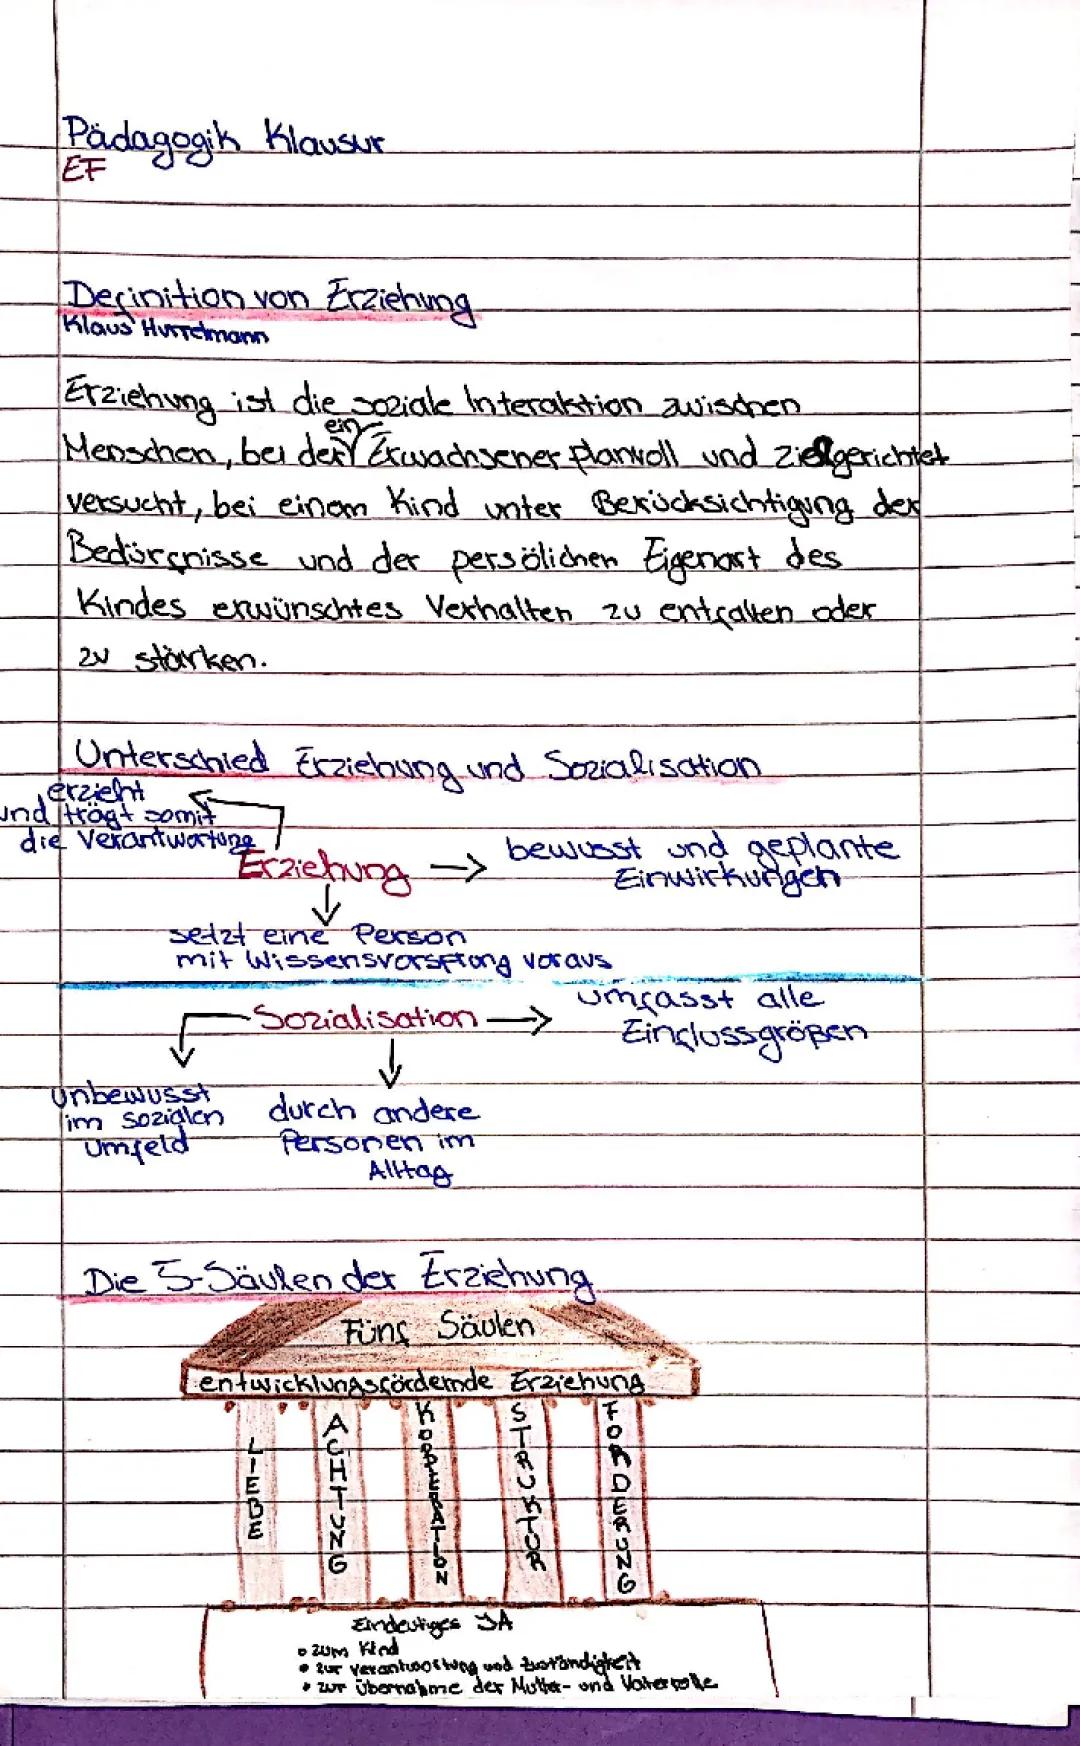 Pädagogik Klausur
EF
Definition von Erziehung
Klaus Hurrelmann
Erziehung ist die soziale Interaktion zwischen
Menschen, bei der ein Erwachsener planvoll und zielgerichtet
versucht, bei einem Kind unter Berücksichtigung der
Bedürfnisse und der persölichen Eigenart des
Kindes erwünschtes Verhalten zu entfalten oder
zu stärken.
Unterschied Erziehung und Sozialisation
erzieht
und trägt somit
die Verantwortung
Erziehung → bewusst und geplante
Einwirkungen
setzt eine Person
mit Wissensvorsprung voraus
Sozialisation → umfasst alle
Einflussgrößen
unbewusst
im sozialen
Umfeld
durch andere
Personen im
Alltag
Die 5-Säulen der Erziehung
Fünf Säulen
entwicklungsfördernde Erziehung
LIEBE
ACHTUNG
KOOPERATION
STRUKTUR
FORDERUNG
Eindeutiges JA
• zum Kind
• zur Verantwortung und Zuständigkeit
• zur Übernahme der Mutter- und Vaterrolle